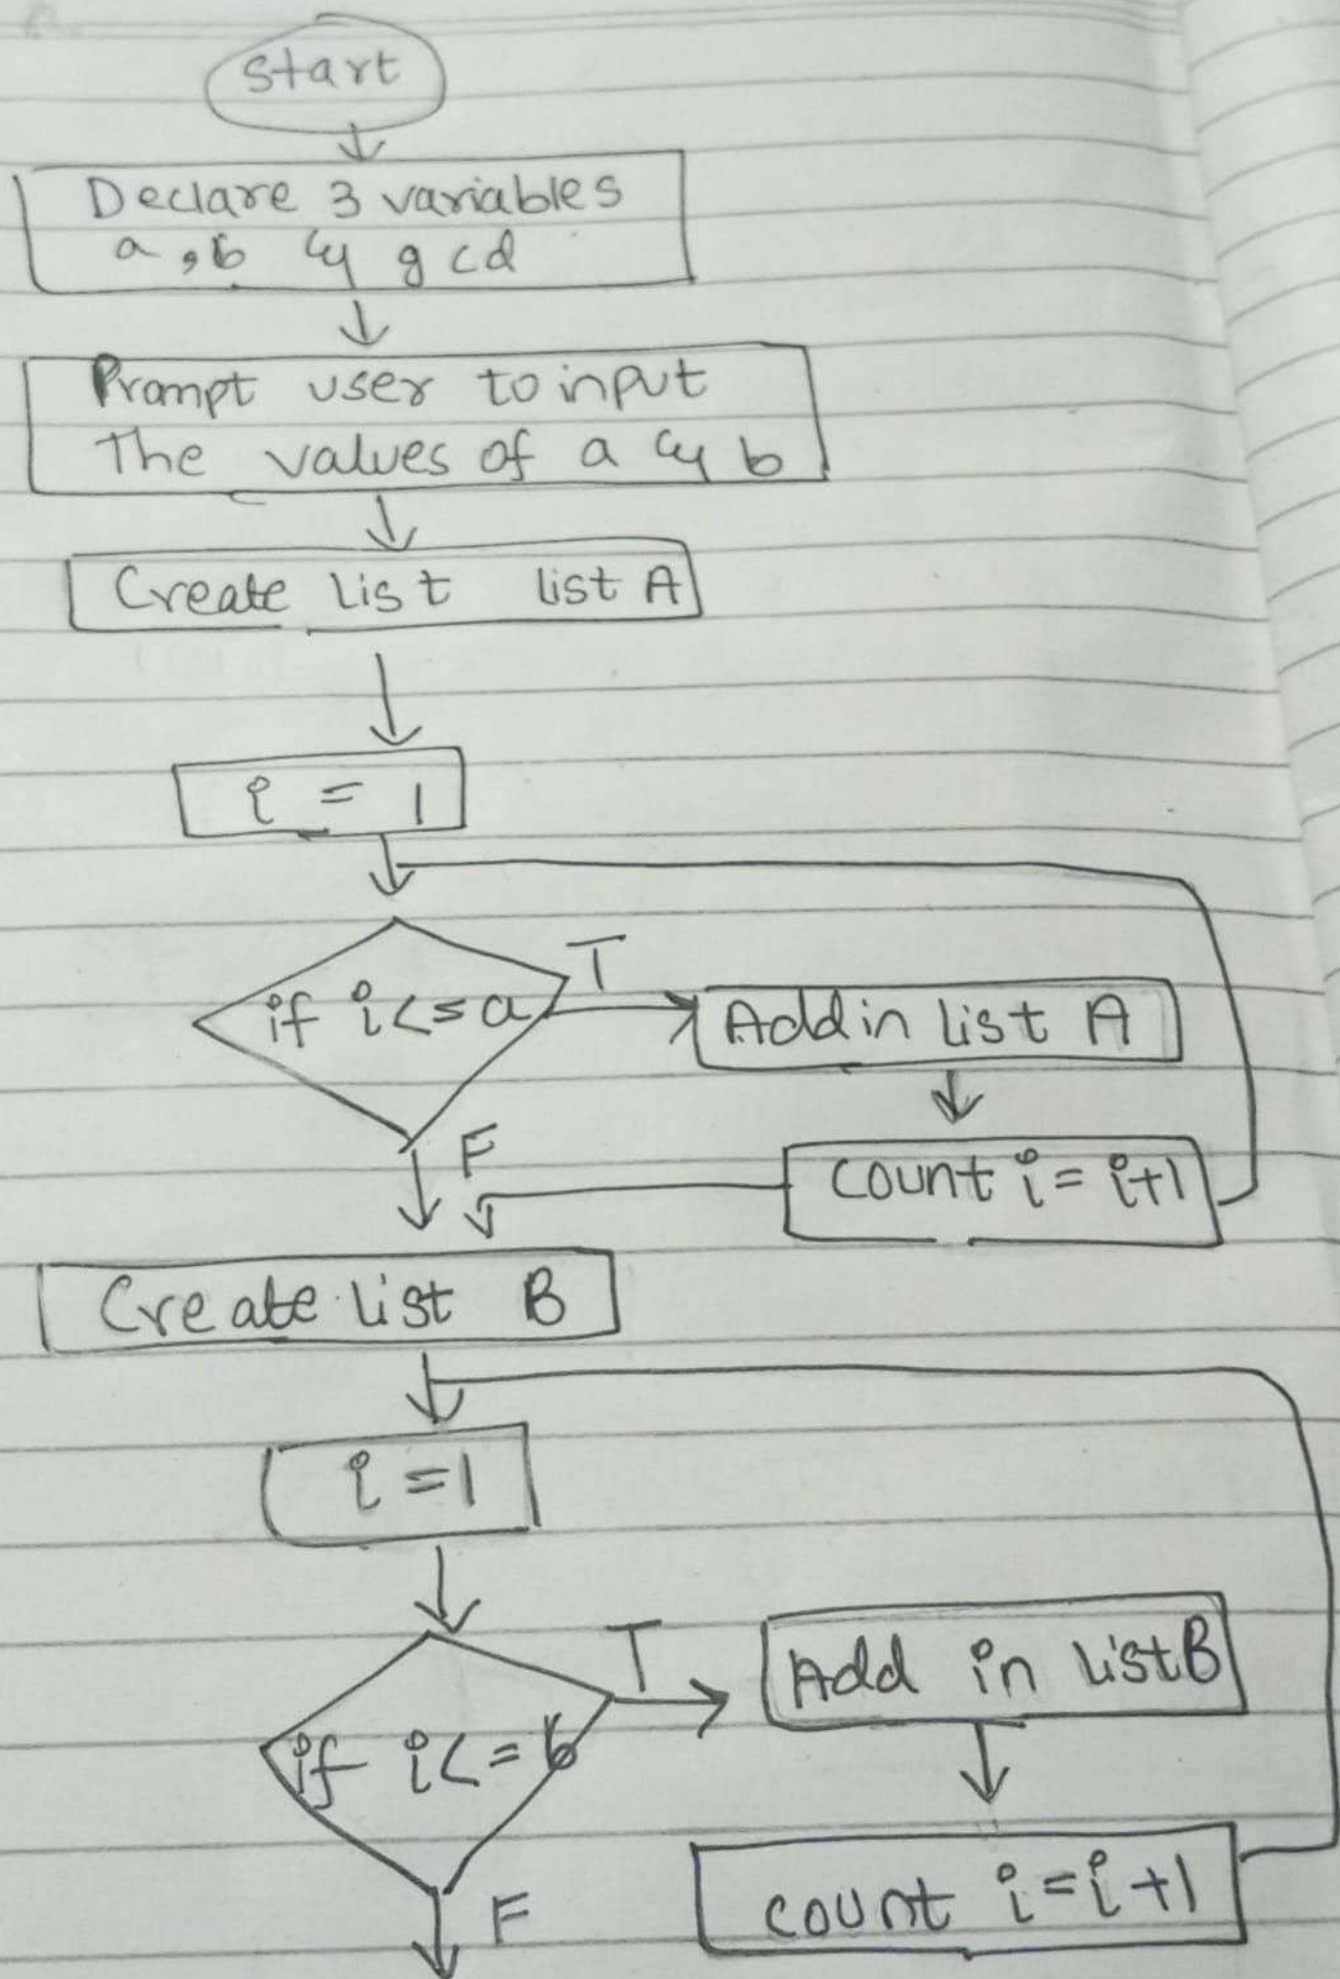 start
Declare 3 variables
a, b & gcd
Prompt user to input
The values of a & b
Create list list A
i = 1
if i <= a
T
Add in list A
F
count i = i+1
Create list B
i = 1
if i <= b
T
Add in list B
F
count i = i+1